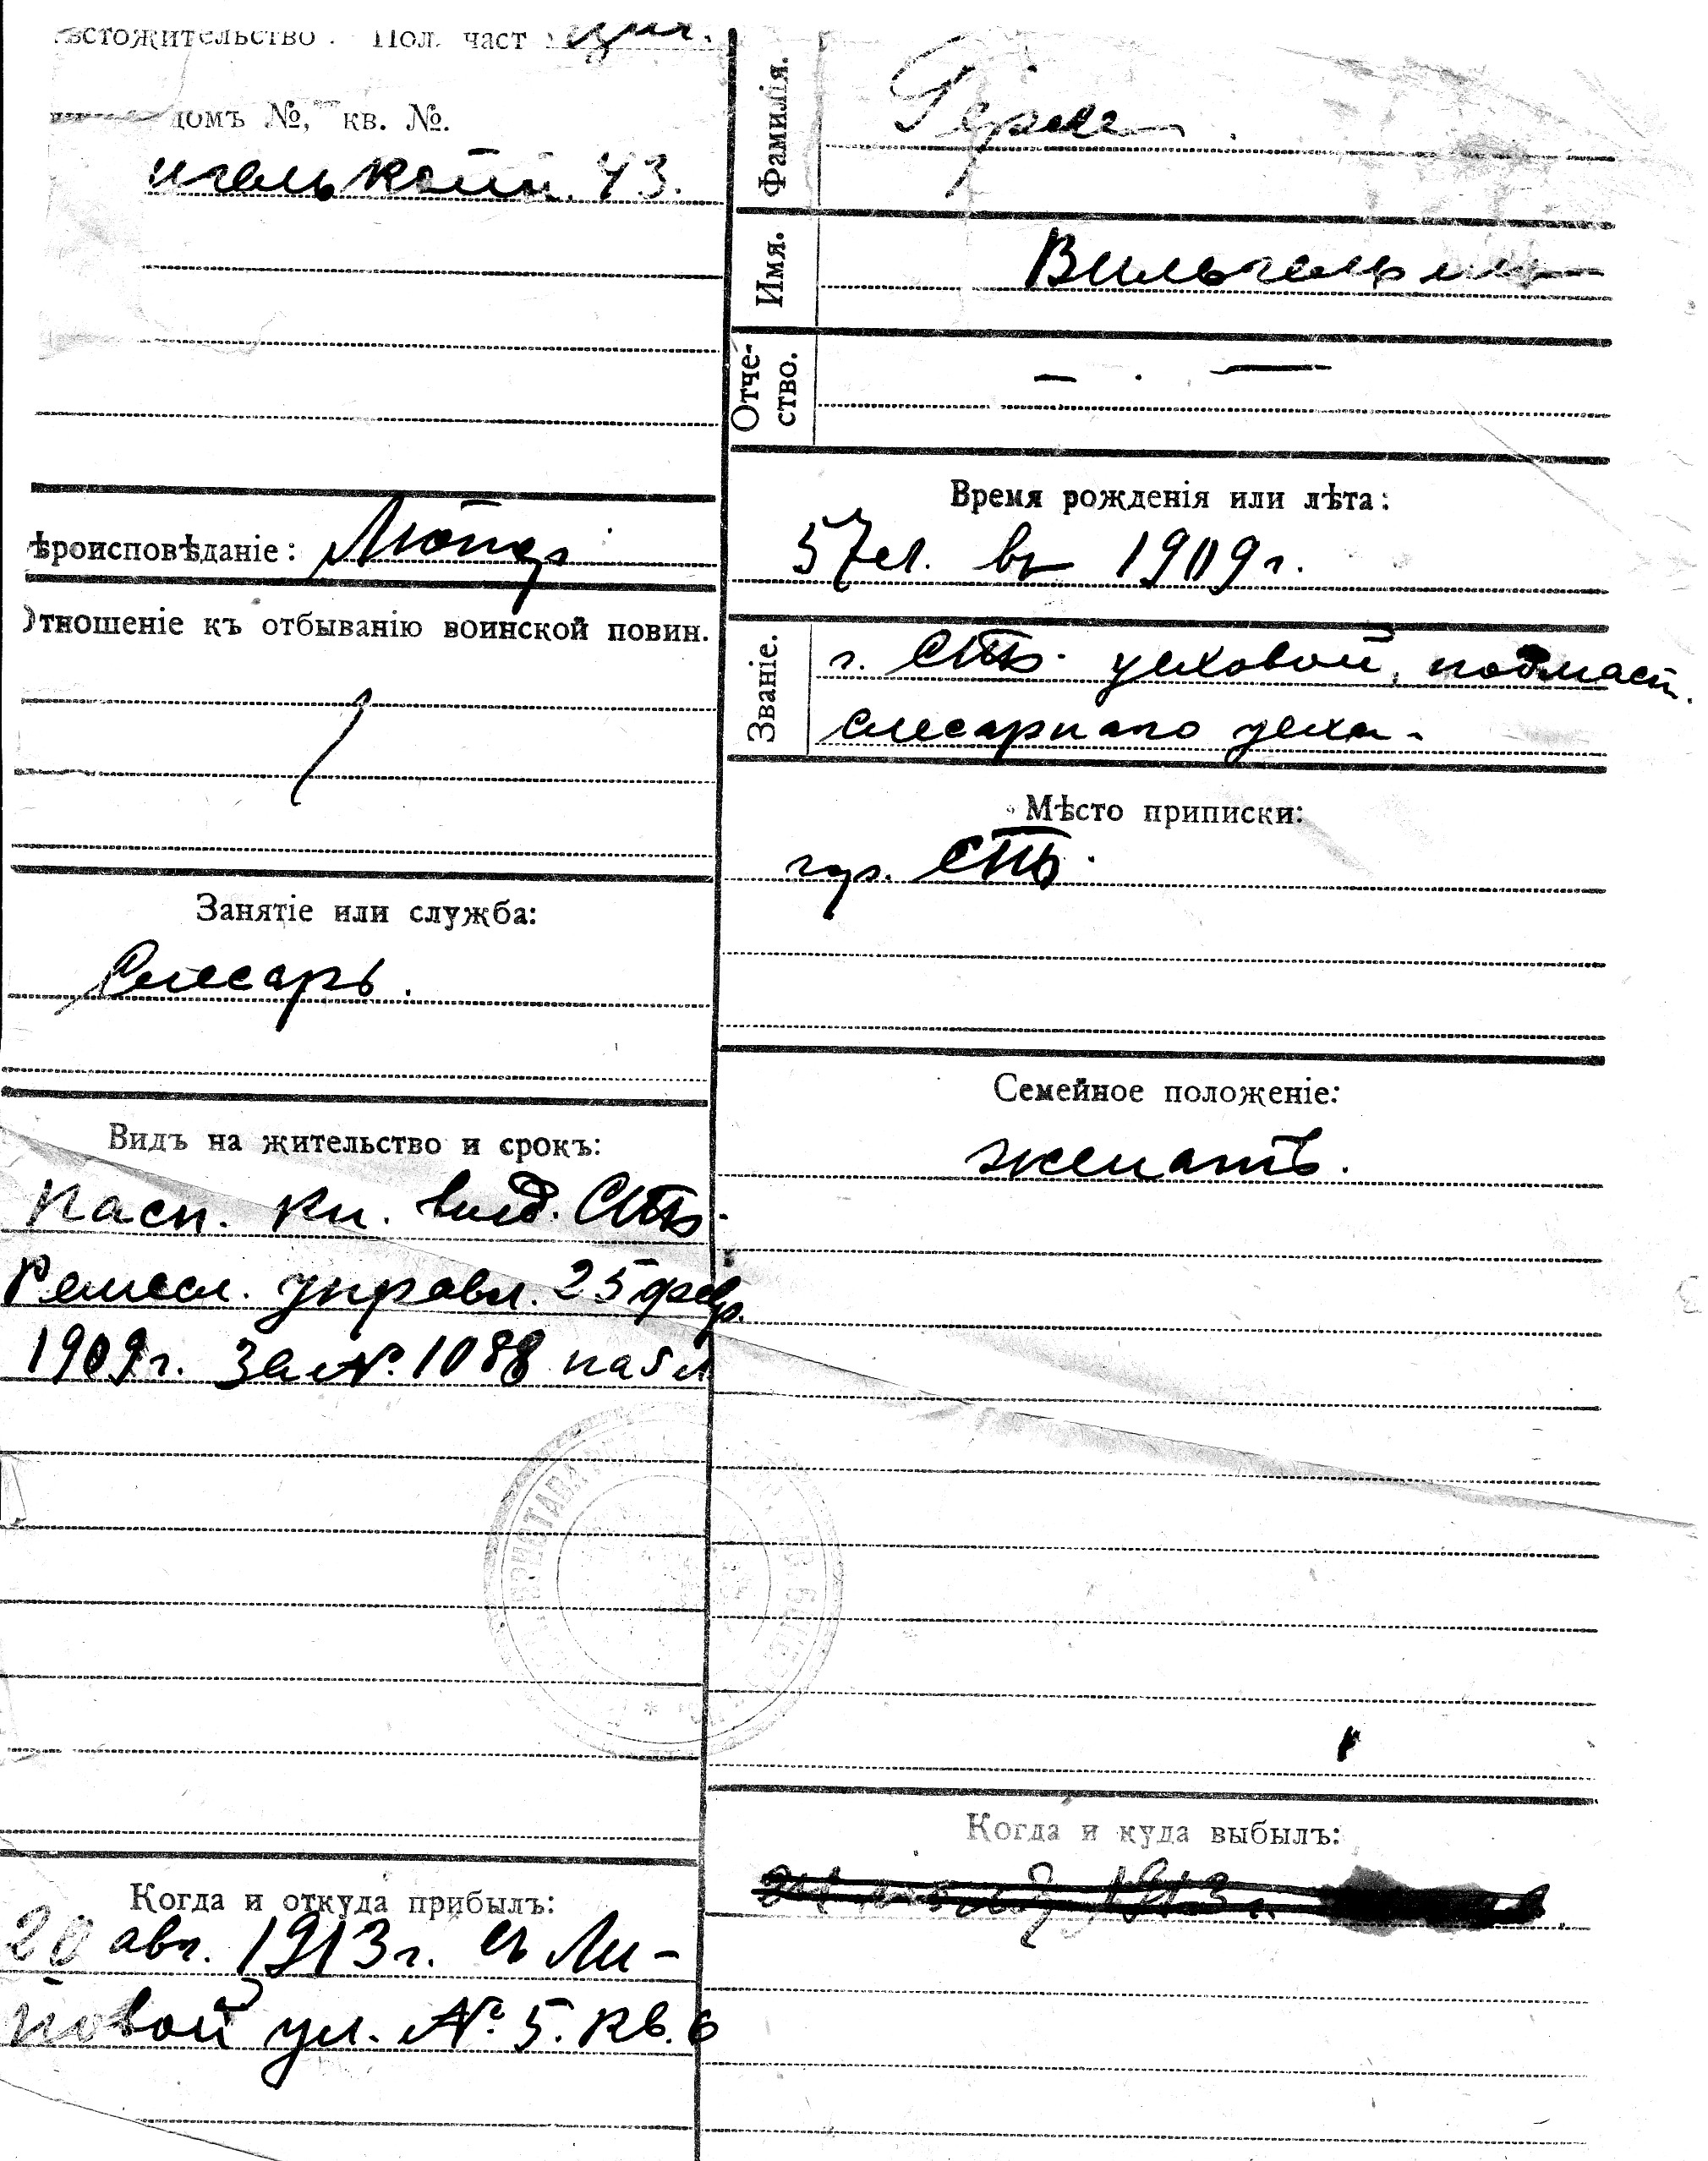 Пол. част
домъ №, кв. №.
43.
Фамилія.
Имя.
Вильгельмъ
Отче-
ство.
— . —
Время рожденія или лѣта:
57 л. въ 1909 г.
Званіе.
г. СПБ. цеховой, подмаст.
слесарнаго цеха.
Мѣсто приписки:
гор. СПБ.
Семейное положеніе:
женатъ.
Когда и куда выбылъ:
1913 г.
ѣроисповѣданіе: Лютер
Отношеніе къ отбыванію воинской повин.
Занятіе или служба:
Слесарь.
Видъ на жительство и срокъ:
Пасп. кн. выд. СПБ.
Ремесл. управл. 25 февр.
1909 г. за № 1088 на 5 л
Когда и откуда прибылъ:
20 авг. 1913 г. съ Ли-
повой ул. № 5. кв. 6